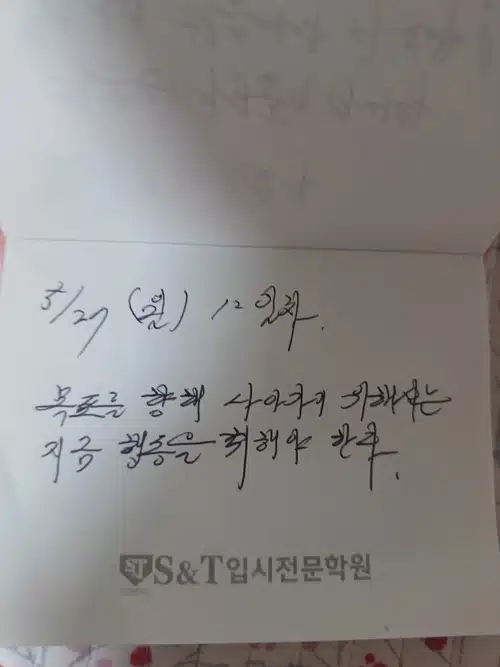 5/27 (월) 12일차.
목표를 향해 나아가기 위해서는
지금 행동을 취해야 한다.
ST S&T입시전문학원